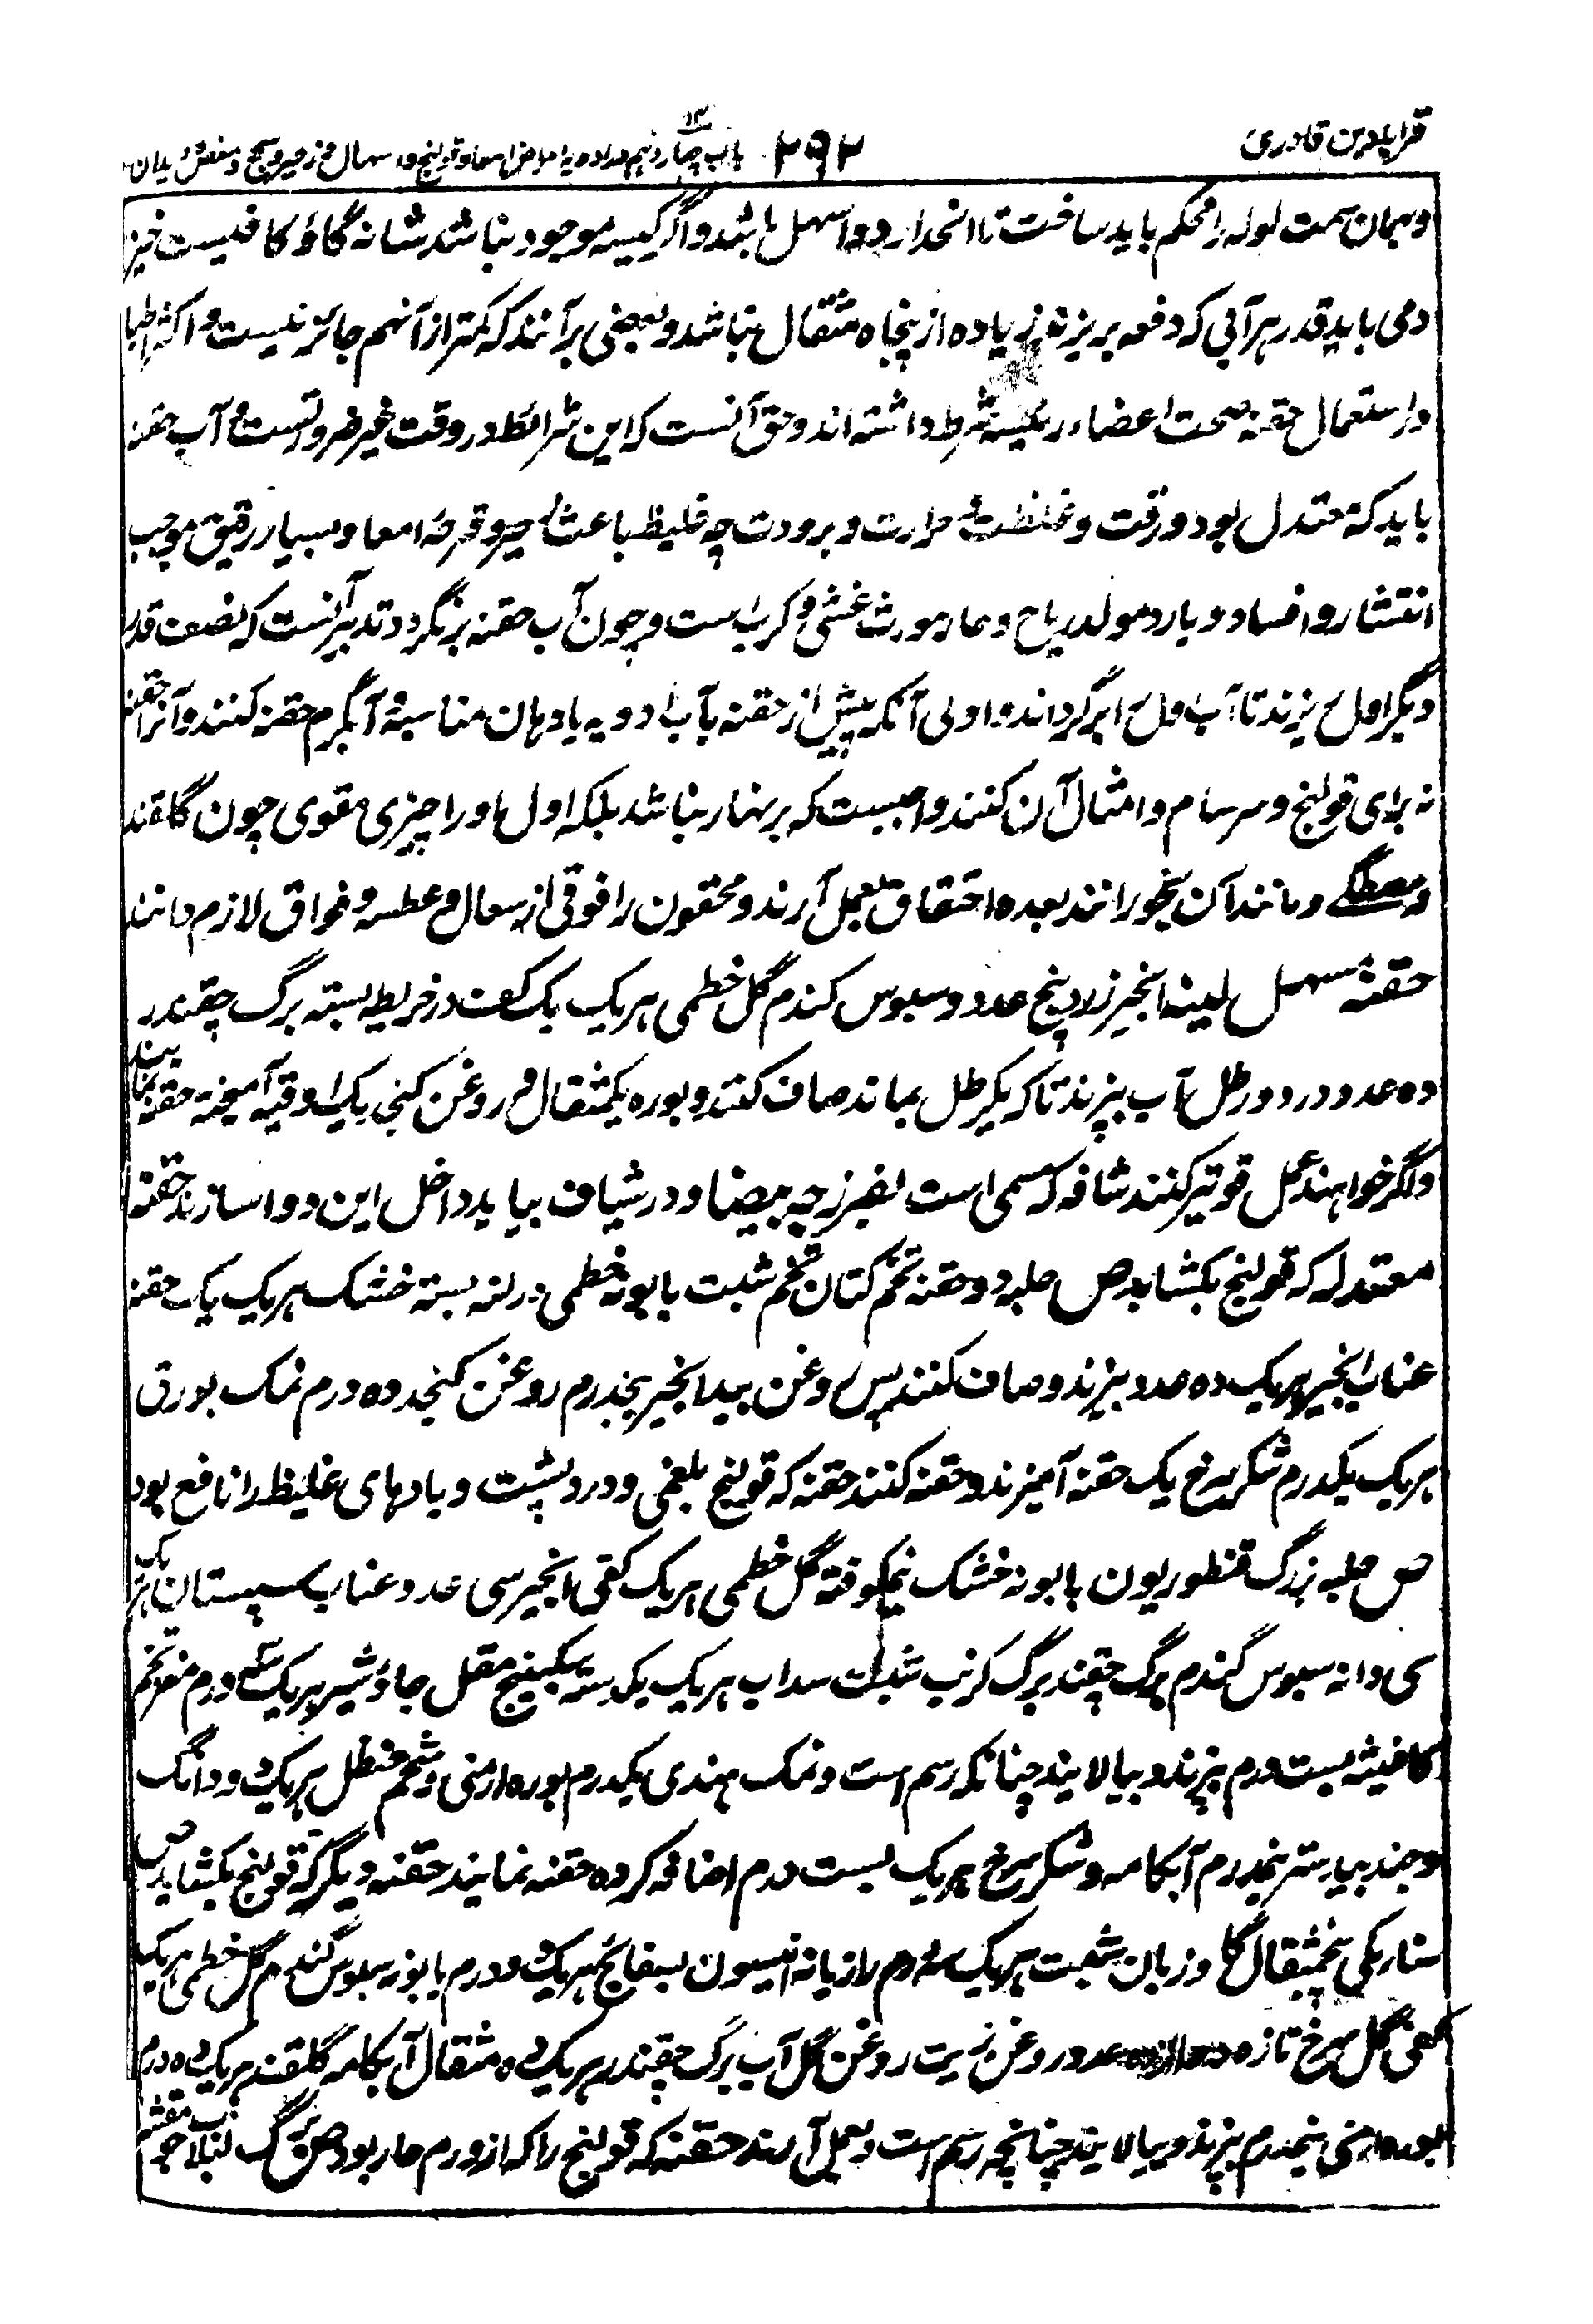 قرابادین قادری
۲۹۲
باب چهاردهم در ادویه امراض امعا و قولنج و اسهال و زحیر و سحج و مغص و دیدان
و بهمان سمت لوله را محکم باید ساخت تا انحدار دوا سهل باشد و اگر کیسه موجود نباشد شانه گاؤ کافیست نیز
و می باید قدر هر آبی که دفعه بریزند زیاده از پنجاه مثقال نباشد و بعضی برآنند که کمتر از آنهم جائز نیست و اکثر اطبا
در استعمال حقنه صحت اعضاء رئیسه شرط داشته اند و حق آنست که این شرائط در وقت غیر ضرورتست و آب حقنه
باید که معتدل بود در رقت و غلظت و حرارت و برودت چه غلیظ باعث زحیر و قرحهٔ امعا و بسیار رقیق موجب
انتشار و افساد و بارد مولد ریاح و حار مورث غشی و کرب است و چون آب حقنه برنگردد تدبیر آنست که نصف قدر
دیگر اول بریزند تا آب اول را برگرداند و اولی آنکه پیش از حقنه بآب ادویه یا دهان مناسبه و آبگرم حقنه کنند و آنرا حقنه
نه برای قولنج و سرسام و امثال آن کنند واجبست که بر نهار نباشد بلکه اول او را چیزی مقوی چون گلقند
و مصطگی و مانند آن بخورانند بعده احتقان بعمل آرند و محقون را فوقی از سعال و عطسه و فواق لازم دانند
حقنهٔ مسهل لینه انجیر زرد پنج عدد و سبوس گندم گل خطمی هریک یک کف در خریطه بسته برگ چقندر
ده عدد در دو رطل آب بپزند تا که یکرطل بماند صاف کنند و بوره یکمثقال و روغن کنجد یک اوقیه آمیخته حقنه نمایند
و اگر خواهند عمل قوتیر کنند شافه که مسمی است بفیرزجه بیضا و در شیاف بیاید داخل این دوا سازند حقنه
معتدله که قولنج بکشاید ص حلبه دو حقنه تخم کتان تخم شبت بابونه خطمی در لته بسته خشک هریک یک حقنه
عناب انجیر هریک ده عدد بپزند و صاف کنند پس روغن بیدانجیر پنجدرم روغن کنجد ده درم نمک بورق
هریک یکدرم شکر سرخ یک حقنه آمیزند و حقنه کنند حقنه که قولنج بلغمی و درد پشت و بادهای غلیظ را نافع بود
ص حلبه بزرگ قنطوریون بابونه خشک نیمکوفته گل خطمی هریک کفی انجیر سی عدد عناب سپستان هریک
سی دانه سبوس گندم برگ چقندر برگ کرنب شبت سداب هریک یکدسته سکبینج مقل جاؤشیر هریک سه درم مغز تخم
کافیشه بست درم بپزند و بپالایند چنانکه رسم است و نمک هندی یکدرم بوره ارمنی و شحم حنظل هریک دو دانگ
و جند بیدستر نیمدرم آبکامه و شکر سرخ هریک بست درم اضافه کرده حقنه نمایند حقنه دیگر که قولنج بکشاید ص
سنار مکی پنجمثقال گاو زبان شبت هریک سه درم رازیانه انیسون بسفایج هریک دو درم بابونه سبوس گندم گل خطمی هریک
کفی گل سرخ تازه عدد روغن زیت روغن گل آب برگ چقندر هریک ده مثقال آبکامه گلقند هریک ده درم
بوره ارمنی نیمدرم بپزند و بپالایند چنانچه رسم است و بعمل آرند حقنه که قولنج را که از ورم حار بود ص برگ لبلاب جو مقشر